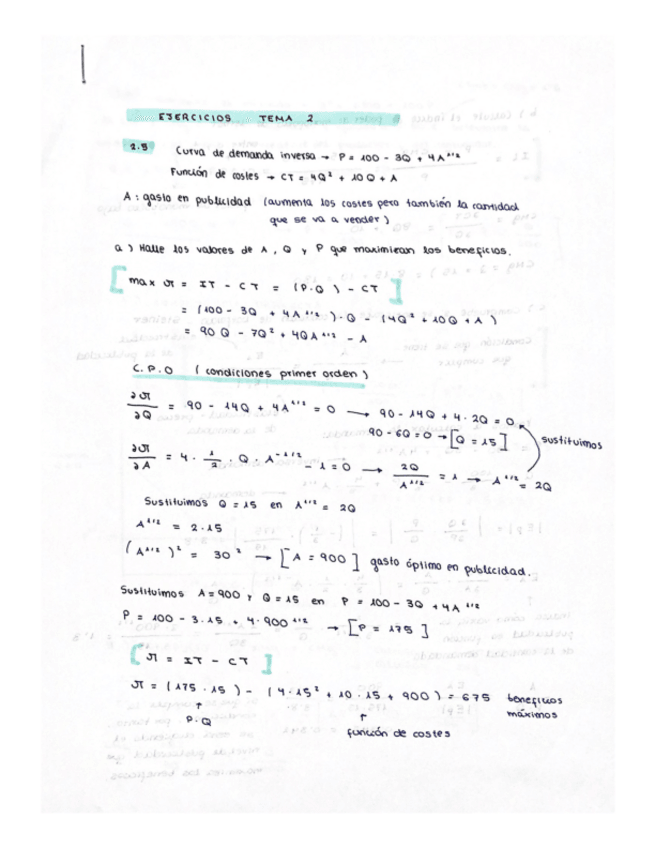 EJERCICIOS TEMA 2
2.5 Curva de demanda inversa → P = 100 - 3Q + 4A^1/2
Función de costes → CT = 4Q² + 10Q + A
A: gasto en publicidad (aumenta los costes pero también la cantidad
que se va a vender)
a) Halle los valores de A, Q y P que maximizan los beneficios.
[max π = IT - CT = (P·Q) - CT]
= (100 - 3Q + 4A^1/2)·Q - (4Q² + 10Q + A)
= 90Q - 7Q² + 4QA^1/2 - A
C.P.O (condiciones primer orden)
∂π/∂Q = 90 - 14Q + 4A^1/2 = 0 → 90 - 14Q + 4·2Q = 0
90 - 6Q = 0 → [Q = 15] sustituimos
∂π/∂A = 4 · 1/2 · Q · A^-1/2 - 1 = 0 → 2Q/A^1/2 = 1 → A^1/2 = 2Q
Sustituimos Q = 15 en A^1/2 = 2Q
A^1/2 = 2·15
(A^1/2)² = 30² → [A = 900] gasto óptimo en publicidad.
Sustituimos A = 900 y Q = 15 en P = 100 - 3Q + 4A^1/2
P = 100 - 3·15 + 4·900^1/2 → [P = 175]
[π = IT - CT]
π = (175·15) - (4·15² + 10·15 + 900) = 675 beneficios
máximos
↑ P·Q
↑ función de costes